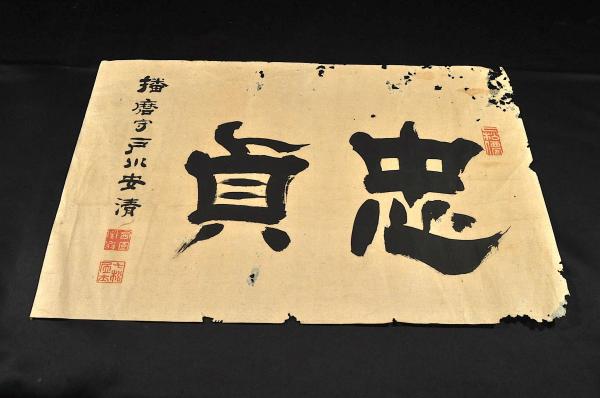 忠貞
播磨守戸川安清